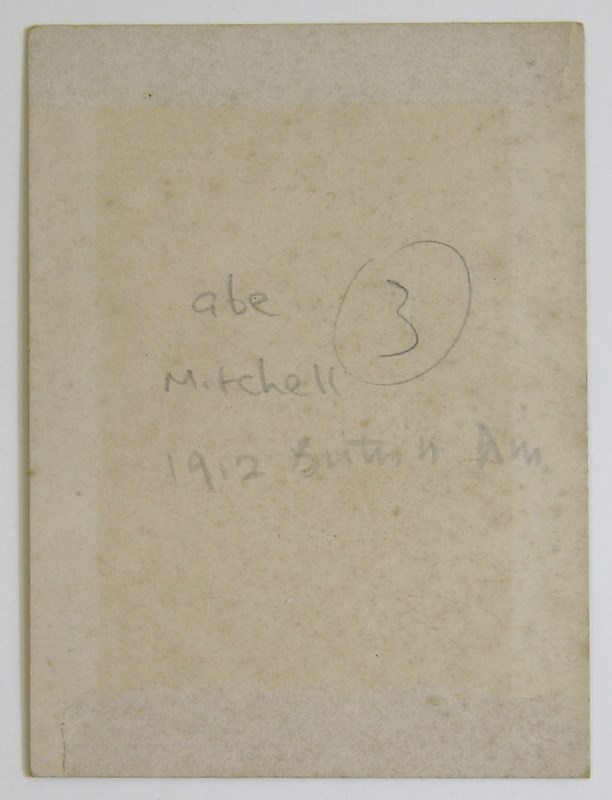 abe 3
Mitchell
1912 British Am